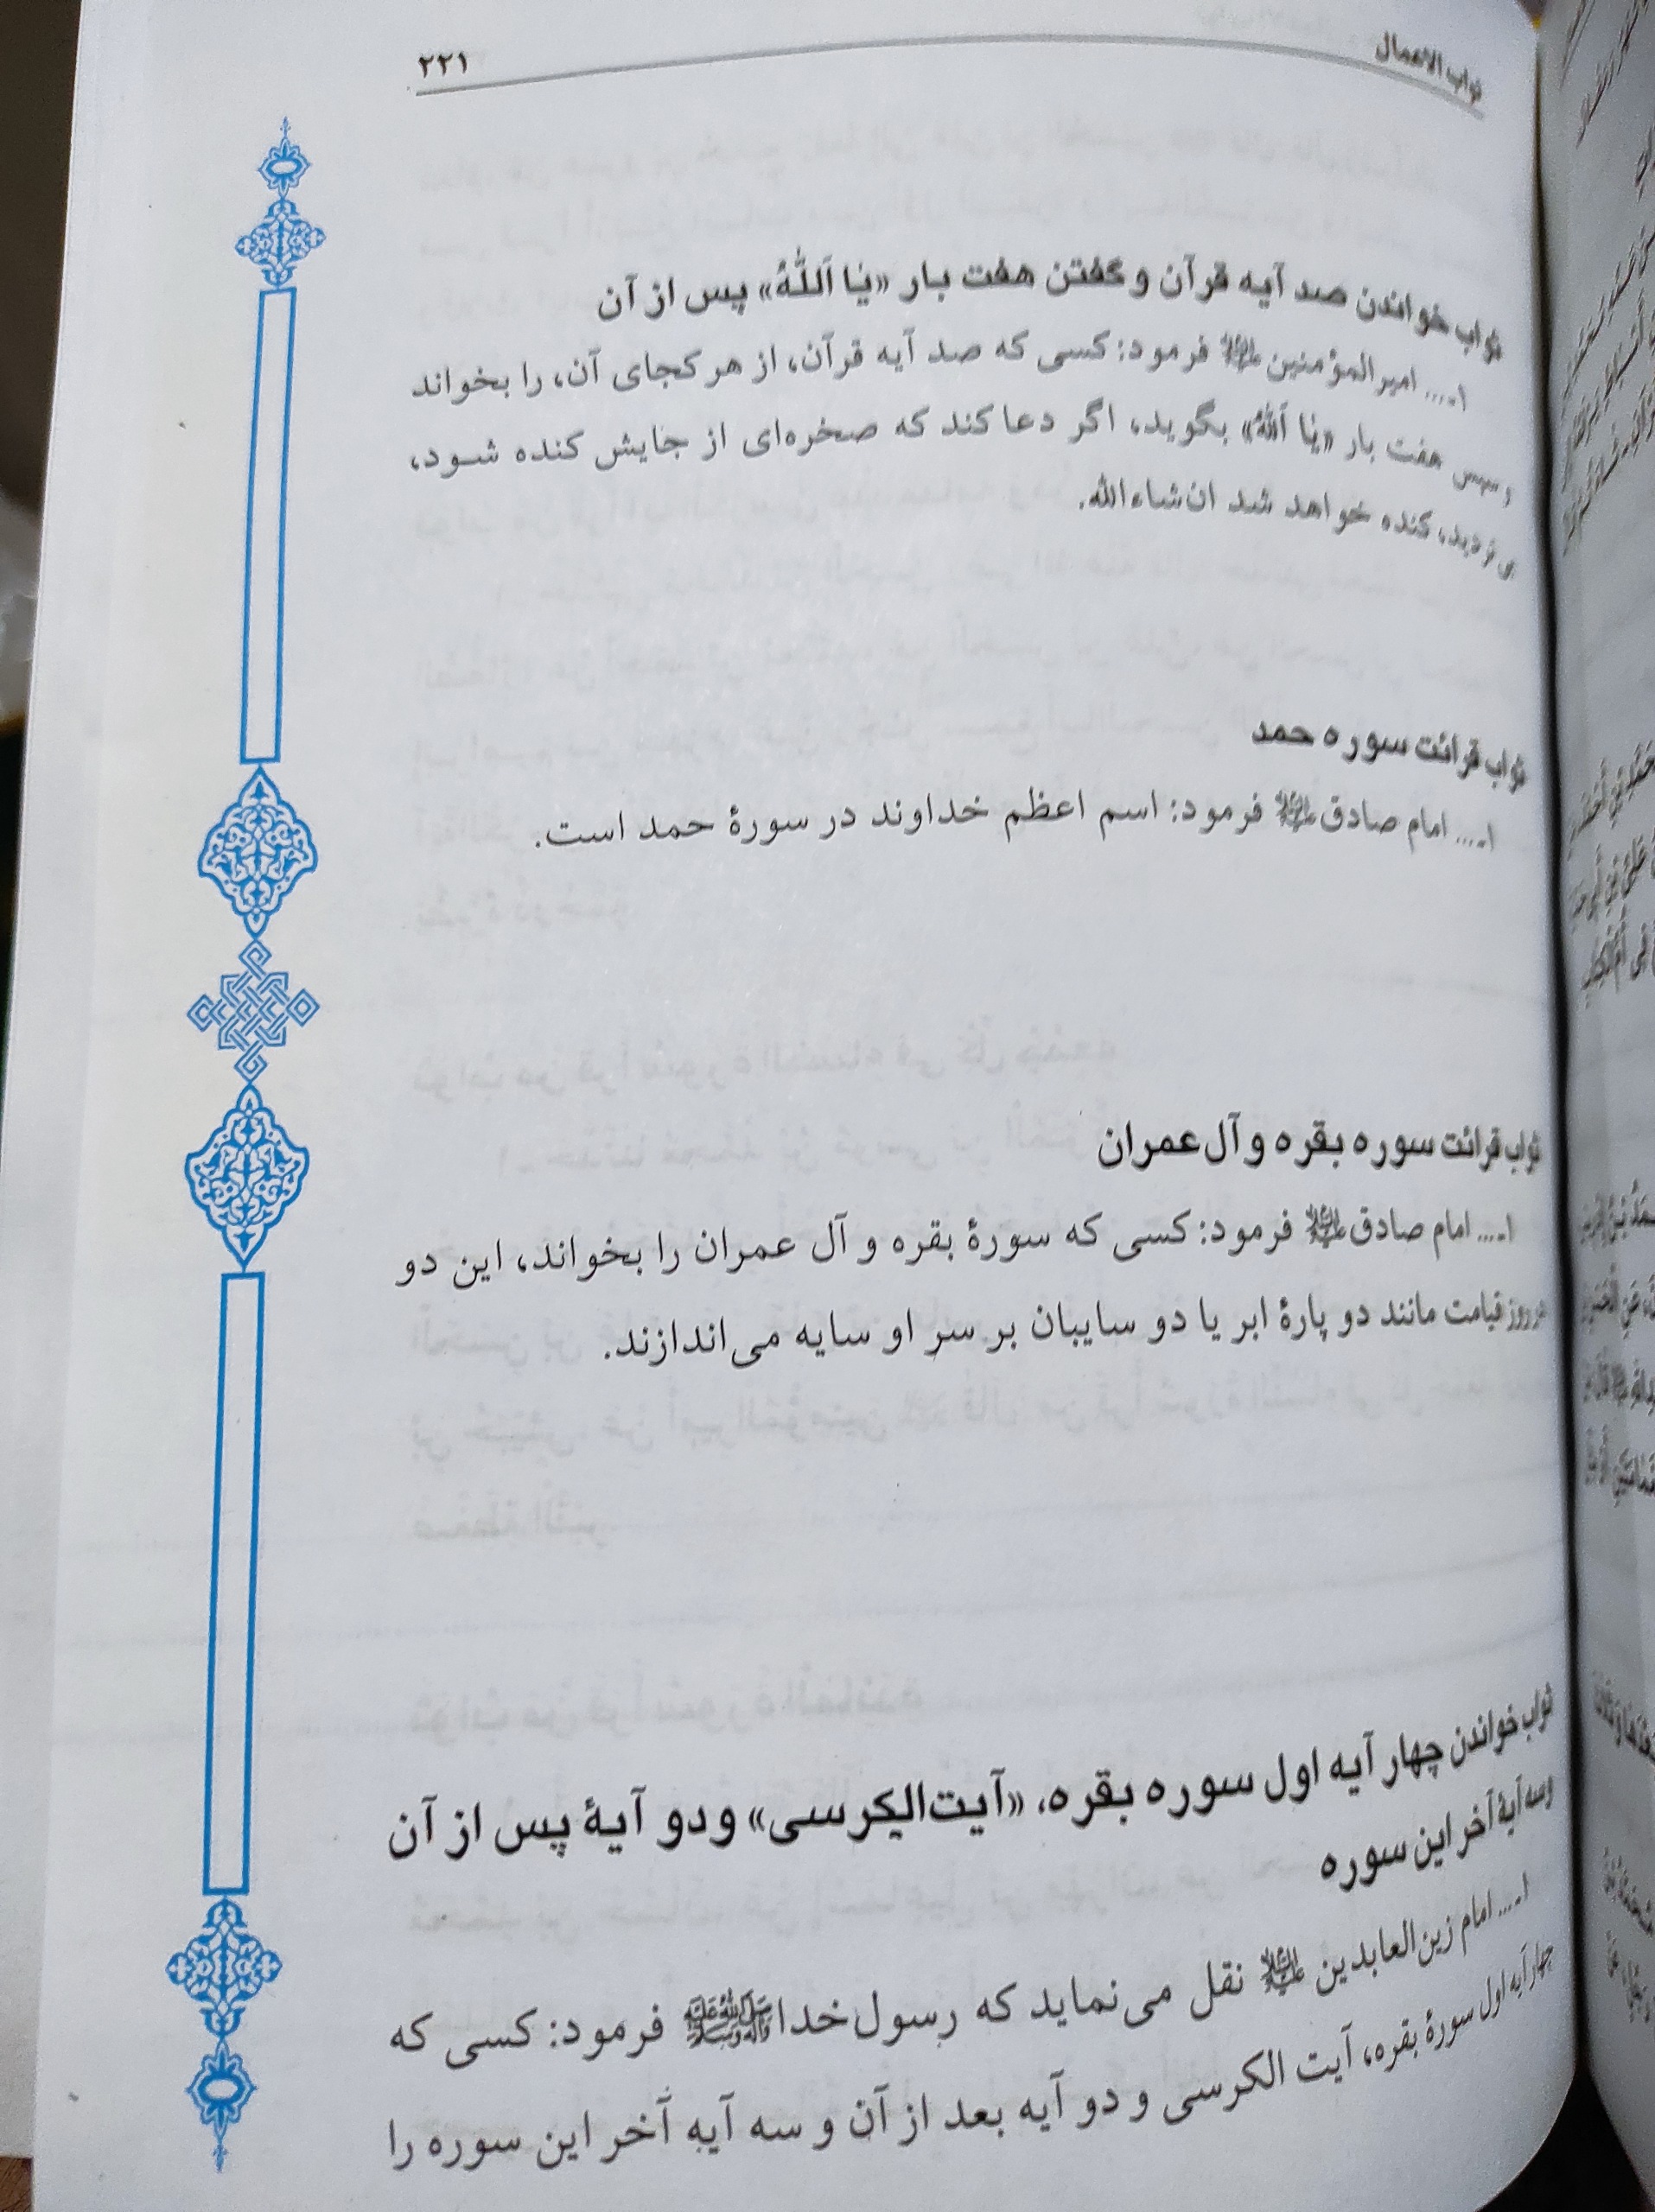 ثواب الاعمال
۲۲۱
ثواب خواندن صد آیه قرآن و گفتن هفت بار «یٰا اَللّٰهُ» پس از آن
۱ـ... امیرالمؤمنین علیه‌السلام فرمود: کسی که صد آیه قرآن، از هر کجای آن، را بخواند
و سپس هفت بار «یٰا اَللّٰهُ» بگوید، اگر دعا کند که صخره‌ای از جایش کنده شود،
تردید، کنده خواهد شد ان‌شاءالله.
ثواب قرائت سوره حمد
۱ـ... امام صادق علیه‌السلام فرمود: اسم اعظم خداوند در سورهٔ حمد است.
ثواب قرائت سوره بقره و آل عمران
۱ـ... امام صادق علیه‌السلام فرمود: کسی که سورهٔ بقره و آل عمران را بخواند، این دو
در روز قیامت مانند دو پارهٔ ابر یا دو سایبان بر سر او سایه می‌اندازند.
ثواب خواندن چهار آیه اول سوره بقره، «آیت‌الکرسی» و دو آیهٔ پس از آن
و سه آیهٔ آخر این سوره
۱ـ... امام زین‌العابدین علیه‌السلام نقل می‌نماید که رسول خدا ﷺ فرمود: کسی که
چهار آیه اول سورهٔ بقره، آیت الکرسی و دو آیه بعد از آن و سه آیه آخر این سوره را